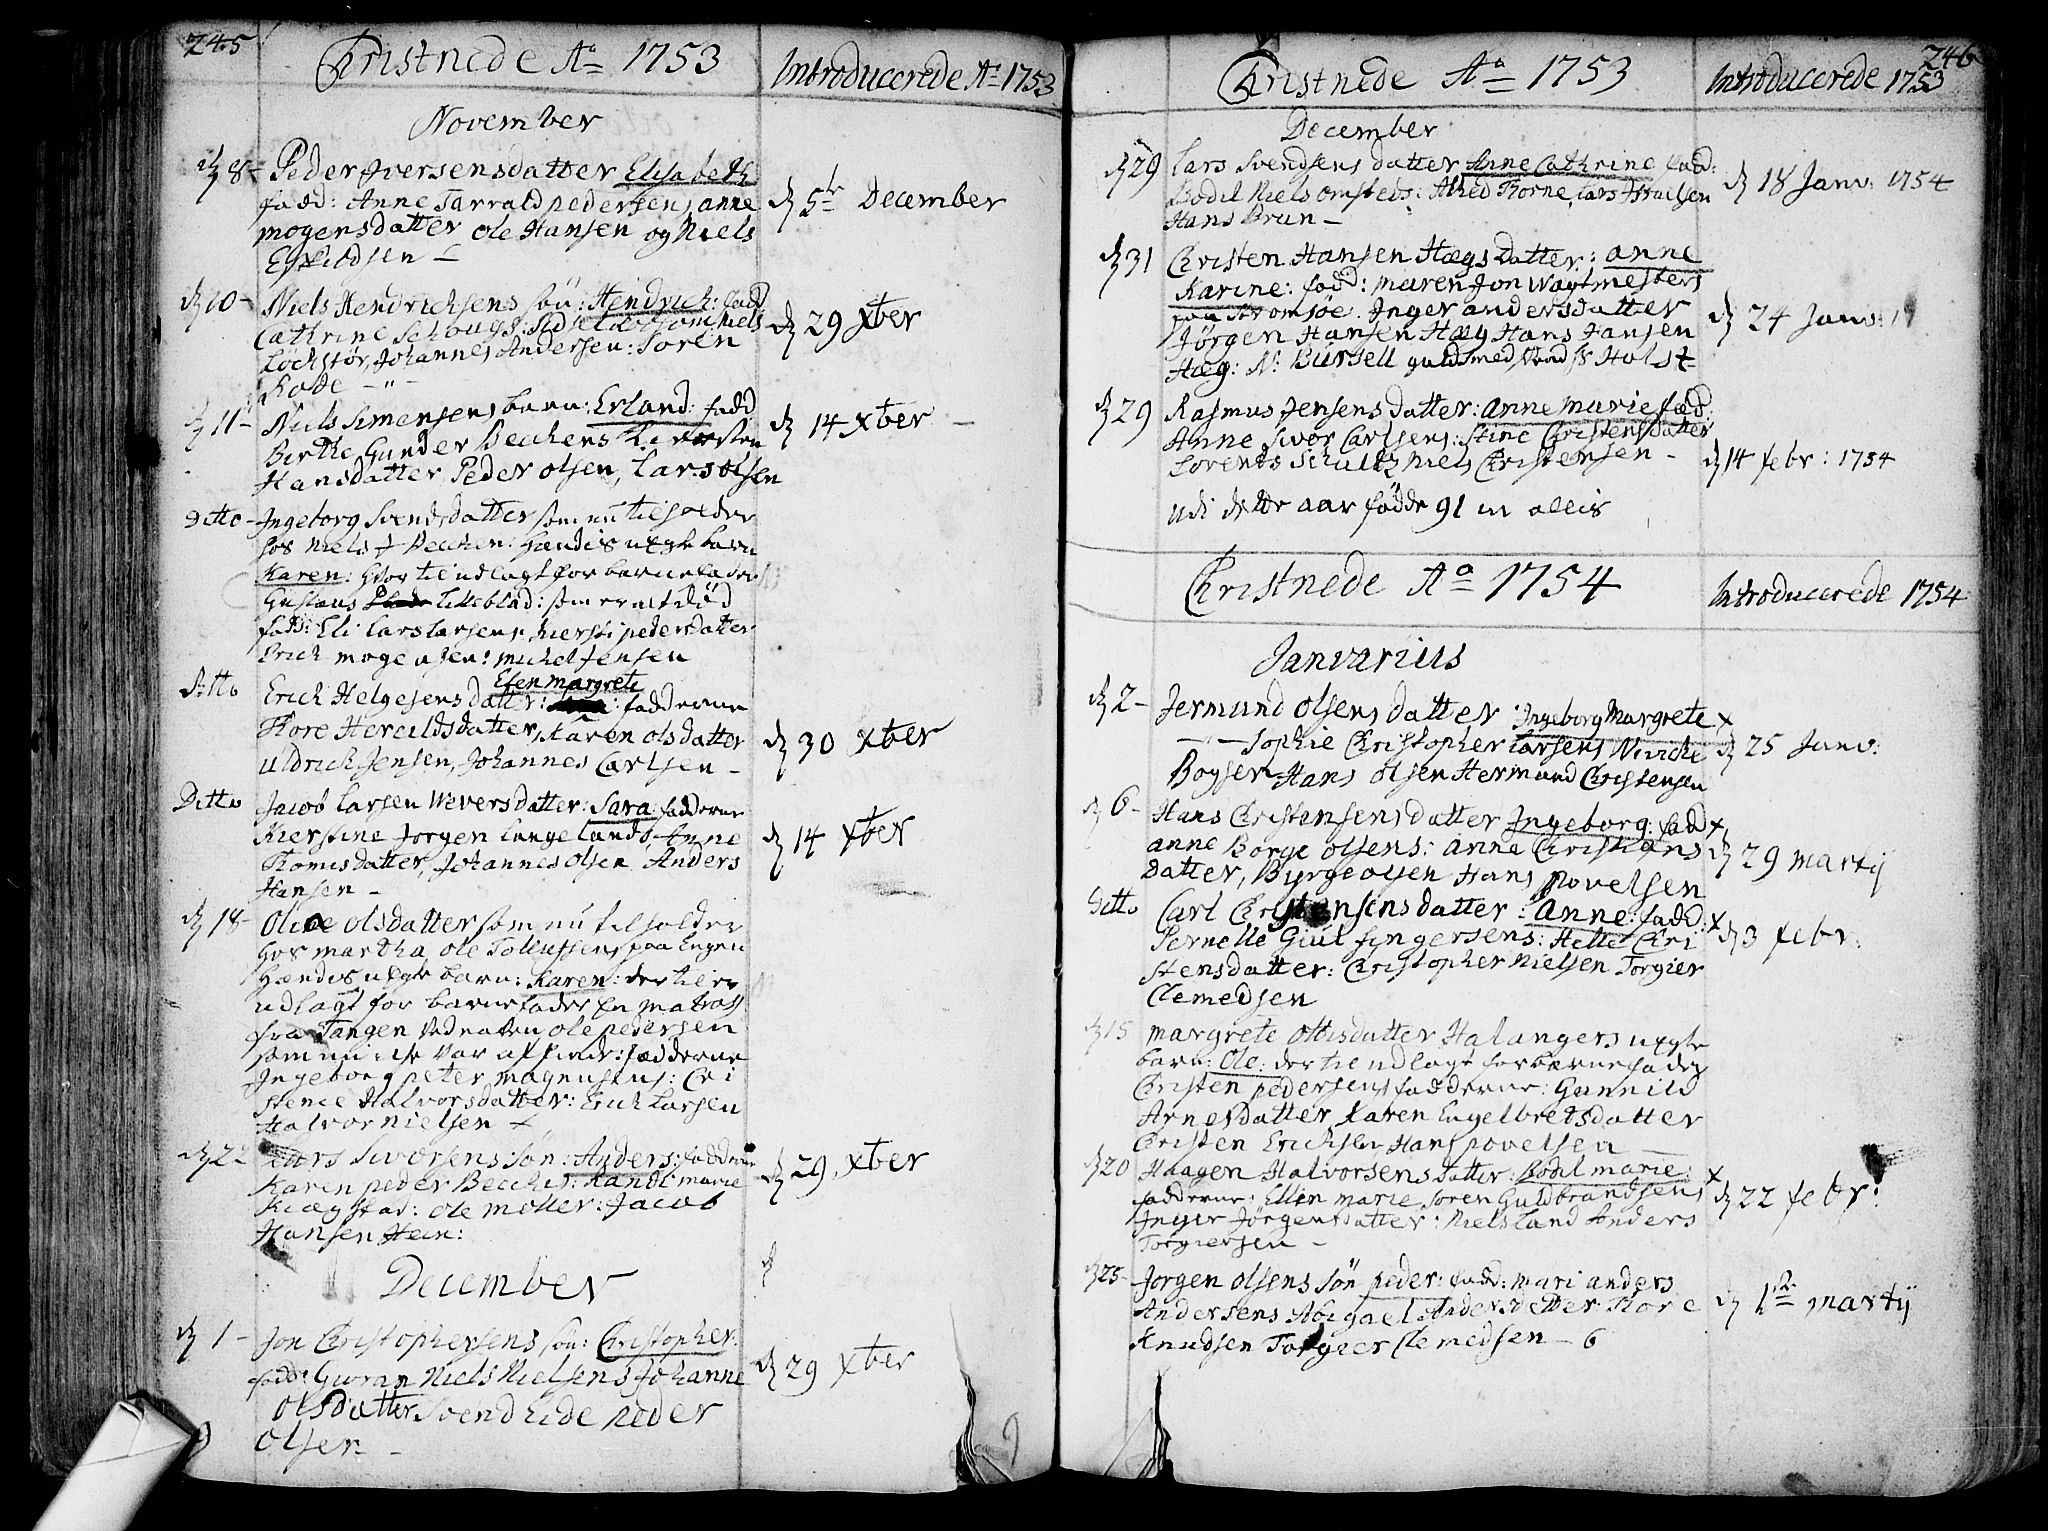 245
Christnede Ao 1753
Introducerede Ao 1753
November
8 - Peder Iversens datter Elisabeth
fadd: Anne Tarrald pedersens anne
mogensdatter ole Hansen og Niels
d 5te December
10 - Niels Hendrichsens sön: Hendrich: fadd
Cathrine
Löchstör, Johannes Andersen: Sören
Rode - " -
d 29 Xber
11 - Niels Simensens barn: Erland: fadd
Berthe Gunder Beckens
Hansdatter Peder olsen, Lars olsen
d 14 Xber -
Ditto - Ingeborg Svendsdatter som nu tilholder
hos Niels Becken: Hendis uægte barn
Karen: hvor til udlagt for barnefader
Gustavus Lilleblad: som er
fadd: Eli Lars Larsens, Kiersti pedersdatter
Erich mogensen: michel Jensen
Ditto
Elen Margrete
Erich Helgesens datter: : fadderne
Thore Hercildsdatter, Karen olsdatter
Uldrich Jensen, Johannes Carlsen -
d 30 Xber
Ditto
Jacob Larsen Wevers datter: Sara: fadderne
Kierstine Jorgen Langelands, Anne
Thomisdatter, Johannes olsen Anders
Hansen -
d 14 Xber
18 - olsdatter som nu tilholder
hos martha ole Tollufsens paa Engen
Hendis uegte barn: Karen: der til er
udlagt for barnefader En matross
fra Tangen ved nafn ole pedersen
som nu var : fadderne
Ingeborg peter magnusens: Cri
stence Halvorsdatter: Erich Larsen
Halvor nielsen
22 Lars Sivorsens sön: Anders: fadderne
Karen peder Beckes: Randi marie
Kiægstad: ole möller: Jacob
Hansen Hein:
d 29 Xber
December
1 - Jon Christophersens sön: Christopher:
fadd: Guran Niels Nielsens Johanne
olsdatter Svend Lide peder
olsen -
d 29 Xber
246
Christnede Ao 1753
Introducerede 1753
December
29 Lars Svendsens datter Anne Cathrine fad:
Bodil Niels omsteds: Lars Israelsen
Hans Brun -
d 18 Janv: 1754
31 Christen Hansen Hægs datter: anne
Karine: fadd: maren Jon Wagtmesters
paa Stromsöe. Inger andersdatter
Jörgen Hansen Hæg Hans Hansen
Hæg: N: Bursell guldsmed Holst
d 24 Janv:
29 Rasmus Jensens datter: anne marie fæd
Anne Sivor Carlsens: Stine Christensdatter
Lorents Schultz Niels Christensen -
d 14 febr: 1754
udi dette aar födde 91 in alles
Christnede Ao 1754
Introducerede 1754
Janvarius
2 - Jermund olsens datter Ingeborg Margrete x
- " - Sophie Christopher Larsens
Boysen Hans olsen Hermund Christensen
d 25 Janv:
6 - Hans Christensens datter Ingeborg: fadd x
anne Borge olsens: anne Christians
datter, Byrge olsen Hans Povelsen
d 29 martij
Ditto Carl Christensens datter: Anne: fadd: x
Pernelle Guul Jingersens: Helle Chri
stensdatter: Christopher Nielsen Torgier
Clemedsen
d 3 febr:
15 margrete ottisdatter Halangers uægte
barn: Ole: der til udlagt for barnefader
Christen pedersens fadderne: Gunnild
Arnesdatter Karen Engelbretsdatter
Christen Erichsen Hans povelsen -
20 Haagen Halvorsens datter: Bodil marie: x
fadderne: Ellen marie, sören Guldbrandsens
Inger Jörgensdatter: Niels Land Anders
Torgiersen -
d 22 febr:
25 - Jorgen olsens sön peder: fadd: mari anders
Andersens Abigael Andersdatter Thore
Knudsen Torgier Clemedsen - 6
d 1ste martij